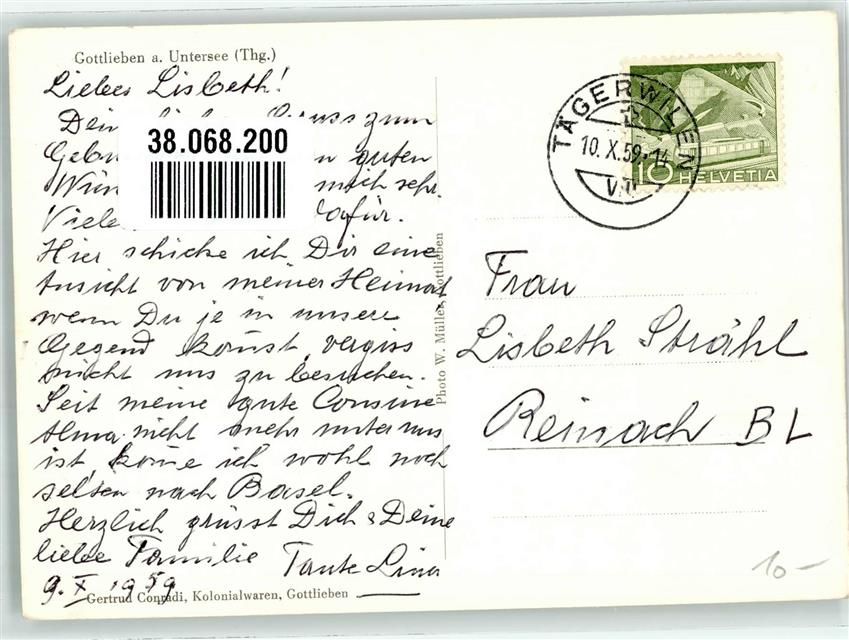 Gottlieben a. Untersee (Thg.)
Liebes Lisbeth!
Dein zum
guten
mich sehr.
Viele dafür.
Hier schicke ich Dir eine
Ansicht von meiner Heimat
wenn Du je in unsere
Gegend komst, vergiss
nicht uns zu besuchen.
Seit meine gute Cousine
Alma nicht mehr unter uns
ist, kome ich wohl noch
selten nach Basel.
Herzlich grüsst Dich & Deine
liebe Familie Tante Lina
9. X 1959
Gertrud Conradi, Kolonialwaren, Gottlieben
38.068.200
Photo W. Müller, Gottlieben
TÄGERWILEN
10. X. 59. 14
10 HELVETIA
Frau
Lisbeth Strähl
Reinach BL
10-